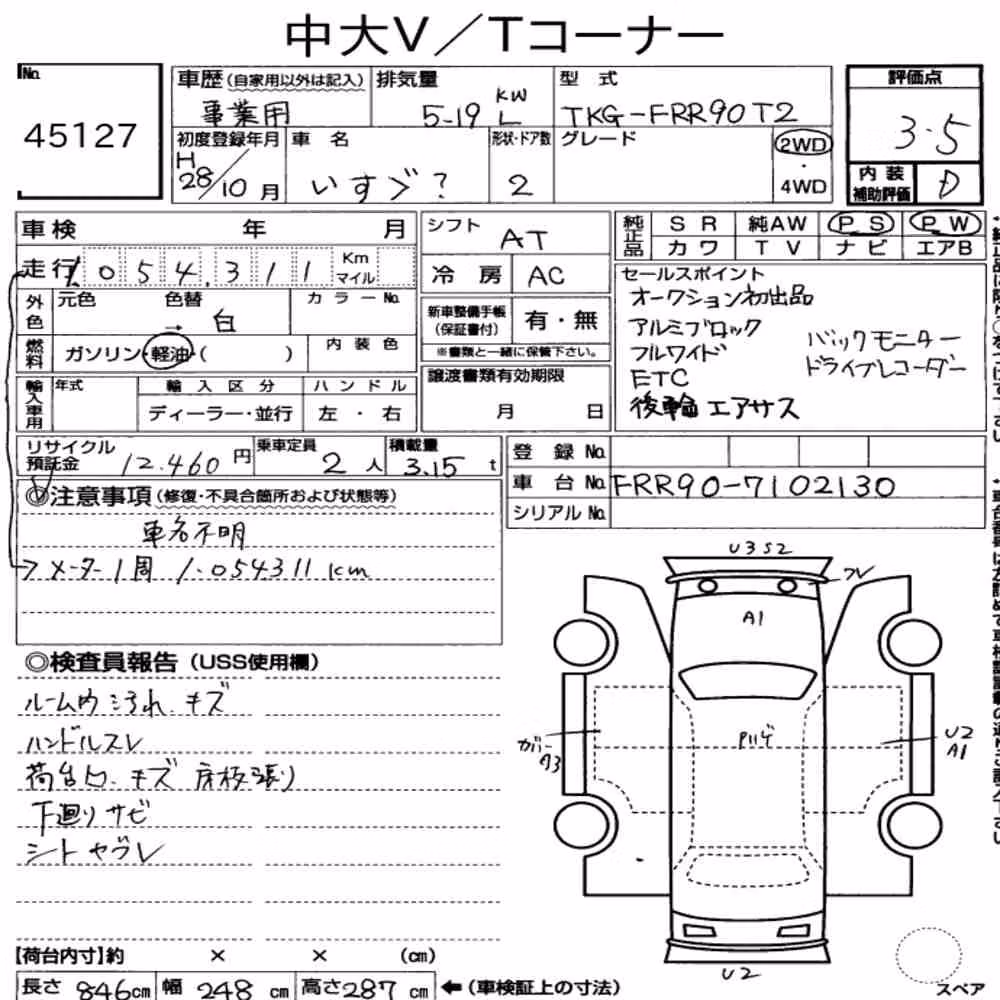 中大V／Tコーナー
No.
45127
車歴（自家用以外は記入）
事業用
排気量
5-19 KW L
型式
TKG-FRR90T2
評価点
3.5
初度登録年月
H
28/10月
車名
いすゞ？
形状・ドア数
2
グレード
2WD
・
4WD
内装
補助評価
D
車検 年 月
走行 1,054,311 Km マイル
外色
元色 色替
→ 白
カラーNo.
燃料
ガソリン・軽油・（ ）
内装色
輸入車用
年式
輸入区分
ディーラー・並行
ハンドル
左・右
シフト
AT
冷房
AC
新車整備手帳
（保証書付）
有・無
※書類と一緒に保管下さい。
譲渡書類有効期限
月 日
純正品
SR 純AW PS PW
カワ TV ナビ エアB
セールスポイント
オークション初出品
アルミブロック
フルワイド
ETC
後輪エアサス
バックモニター
ドライブレコーダー
リサイクル
預託金
12,460円
乗車定員
2人
積載量
3.15t
登録No.
車台No.
FRR90-7102130
シリアルNo.
◎注意事項（修復・不具合箇所および状態等）
車名不明
→メーター1周 1,054311km
◎検査員報告（USS使用欄）
ルーム内汚れ.キズ
ハンドルスレ
荷台凹.キズ 床板張り
下廻りサビ
シートヤブレ
U3S2
フレ
A1
カバー
A3
U2
A1
U2
スペア
【荷台内寸】約 × × （cm）
長さ 846cm 幅 248cm 高さ287cm ←（車検証上の寸法）